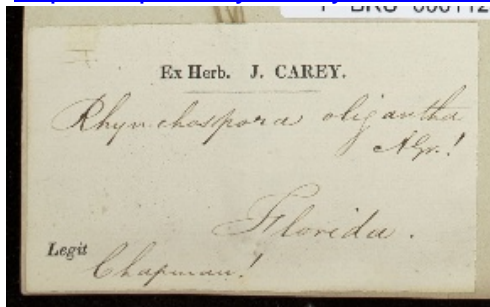 Ex Herb. J. CAREY.
Rhynchospora oligantha
AGr.!
Florida.
Legit
Chapman!